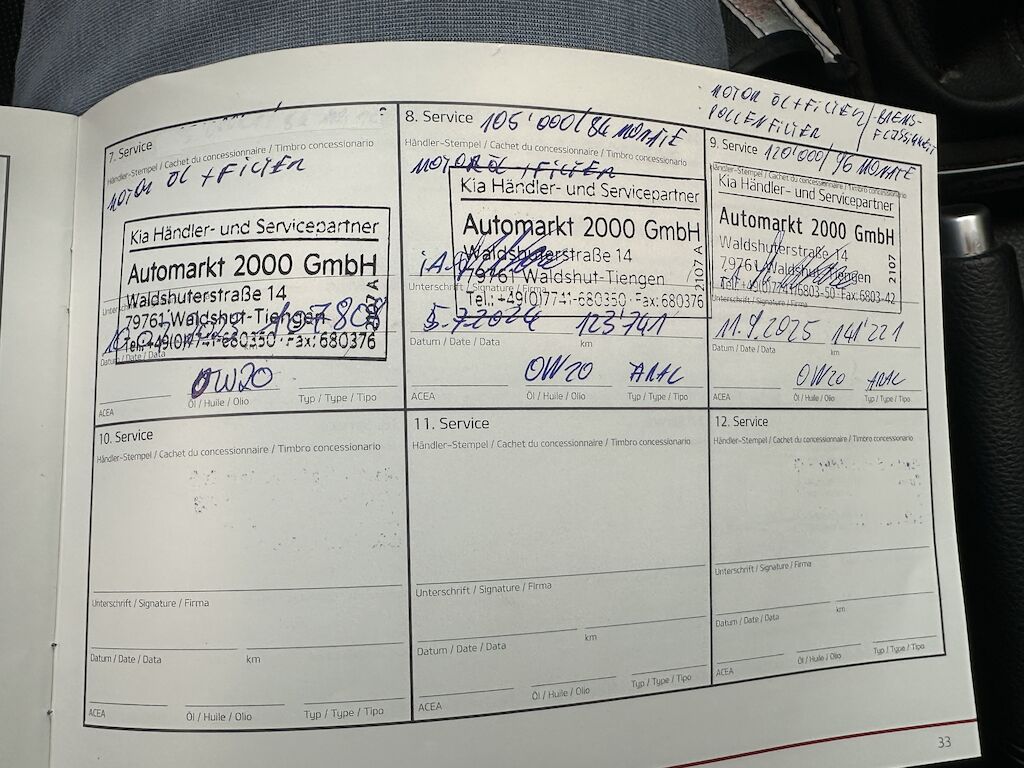 MOTOR ÖL + FILTER / BREMS-
POLLENFILTER FLÜSSIGKEIT
7. Service
Händler-Stempel / Cachet du concessionnaire / Timbro concessionario
MOTOR ÖL + FILTER
Kia Händler- und Servicepartner
Automarkt 2000 GmbH
Waldshuterstraße 14
79761 Waldshut-Tiengen
Tel.: +49(0)7741-680350 · Fax: 680376
2107 A
107808
Datum / Date / Data
0W20
ACEA
Öl / Huile / Olio
Typ / Type / Tipo
8. Service 105'000/84 MONATE
Händler-Stempel / Cachet du concessionnaire / Timbro concessionario
MOTOR ÖL + FILTER
Kia Händler- und Servicepartner
Automarkt 2000 GmbH
Waldshuterstraße 14
79761 Waldshut-Tiengen
Tel.: +49(0)7741-680350 · Fax: 680376
2107 A
i.A.
Unterschrift / Signature / Firma
5.7.2024 123'741
Datum / Date / Data km
0W20 ARAL
ACEA
Öl / Huile / Olio
Typ / Type / Tipo
9. Service 120'000/96 MONATE
Händler-Stempel / Cachet du concessionnaire / Timbro concessionario
Kia Händler- und Servicepartner
Automarkt 2000 GmbH
Waldshuterstraße 14
79761 Waldshut-Tiengen
Tel.: +49(0)7741-6803-50 · Fax: 6803-42
2107
Unterschrift / Signature / Firma
11.9.2025 141'221
Datum / Date / Data km
0W20 ARAL
ACEA
Öl / Huile / Olio
Typ / Type / Tipo
10. Service
Händler-Stempel / Cachet du concessionnaire / Timbro concessionario
Unterschrift / Signature / Firma
Datum / Date / Data km
ACEA
Öl / Huile / Olio
Typ / Type / Tipo
11. Service
Händler-Stempel / Cachet du concessionnaire / Timbro concessionario
Unterschrift / Signature / Firma
Datum / Date / Data km
ACEA
Öl / Huile / Olio
Typ / Type / Tipo
12. Service
Händler-Stempel / Cachet du concessionnaire / Timbro concessionario
Unterschrift / Signature / Firma
Datum / Date / Data km
ACEA
Öl / Huile / Olio
Typ / Type / Tipo
33